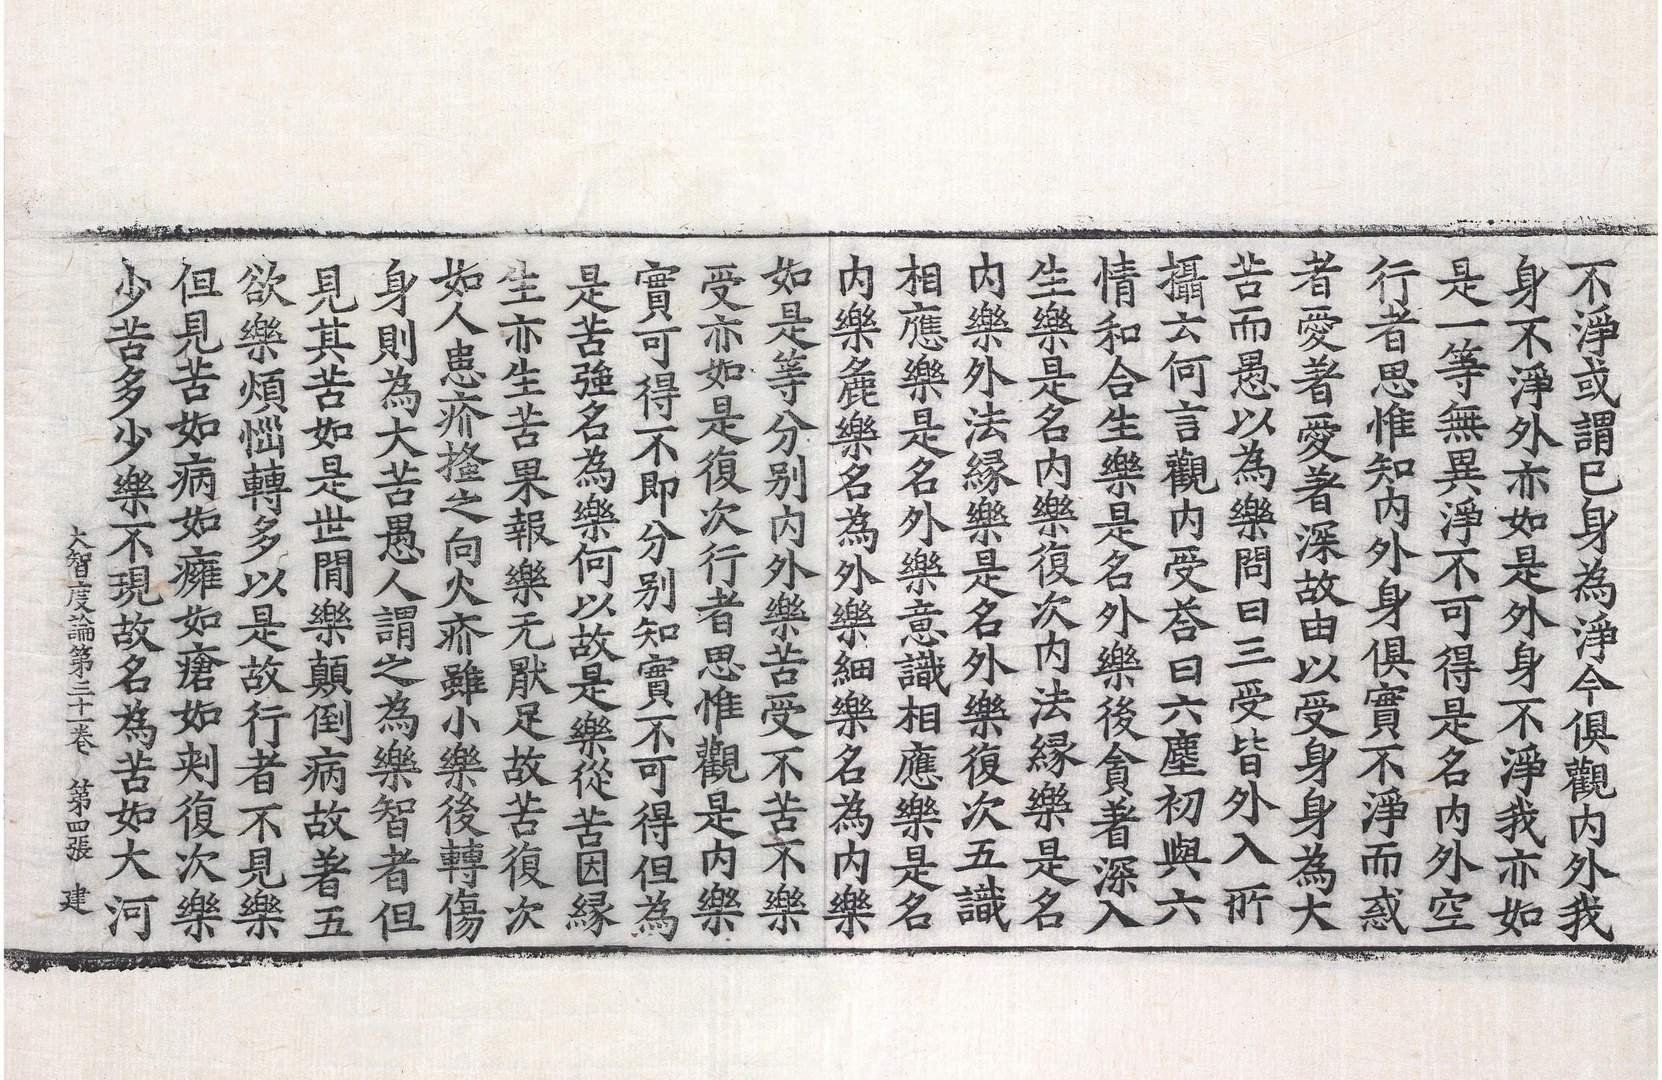 不淨或謂已身為淨今俱觀内外我
身不淨外亦如是外身不淨我亦如
是一等無異淨不可得是名内外空
行者思惟知内外身俱實不淨而惑
者愛著愛著深故由以受身身為大
苦而愚以為樂問曰三受皆外入所
攝云何言觀内受荅曰六塵初與六
情和合生樂是名外樂後貪著深入
生樂是名内樂復次内法縁樂是名
内樂外法縁樂是名外樂復次五識
相應樂是名外樂意識相應樂是名
内樂麁樂名為外樂細樂名為内樂
如是等分别内外樂苦受不苦不樂
受亦如是復次行者思惟觀是内樂
實可得不即分别知實不可得但為
是苦強名為樂何以故是樂從苦因縁
生亦生苦果報樂无猒足故苦復次
如人患疥搔之向火疥雖小樂後轉傷
身則為大苦愚人謂之為樂智者但
見其苦如是世間樂顛倒病故著五
欲樂煩惱轉多以是故行者不見樂
但見苦如病如癰如瘡如刾復次樂
少苦多少樂不現故名為苦如大河
大智度論第三十一卷　第四張　建